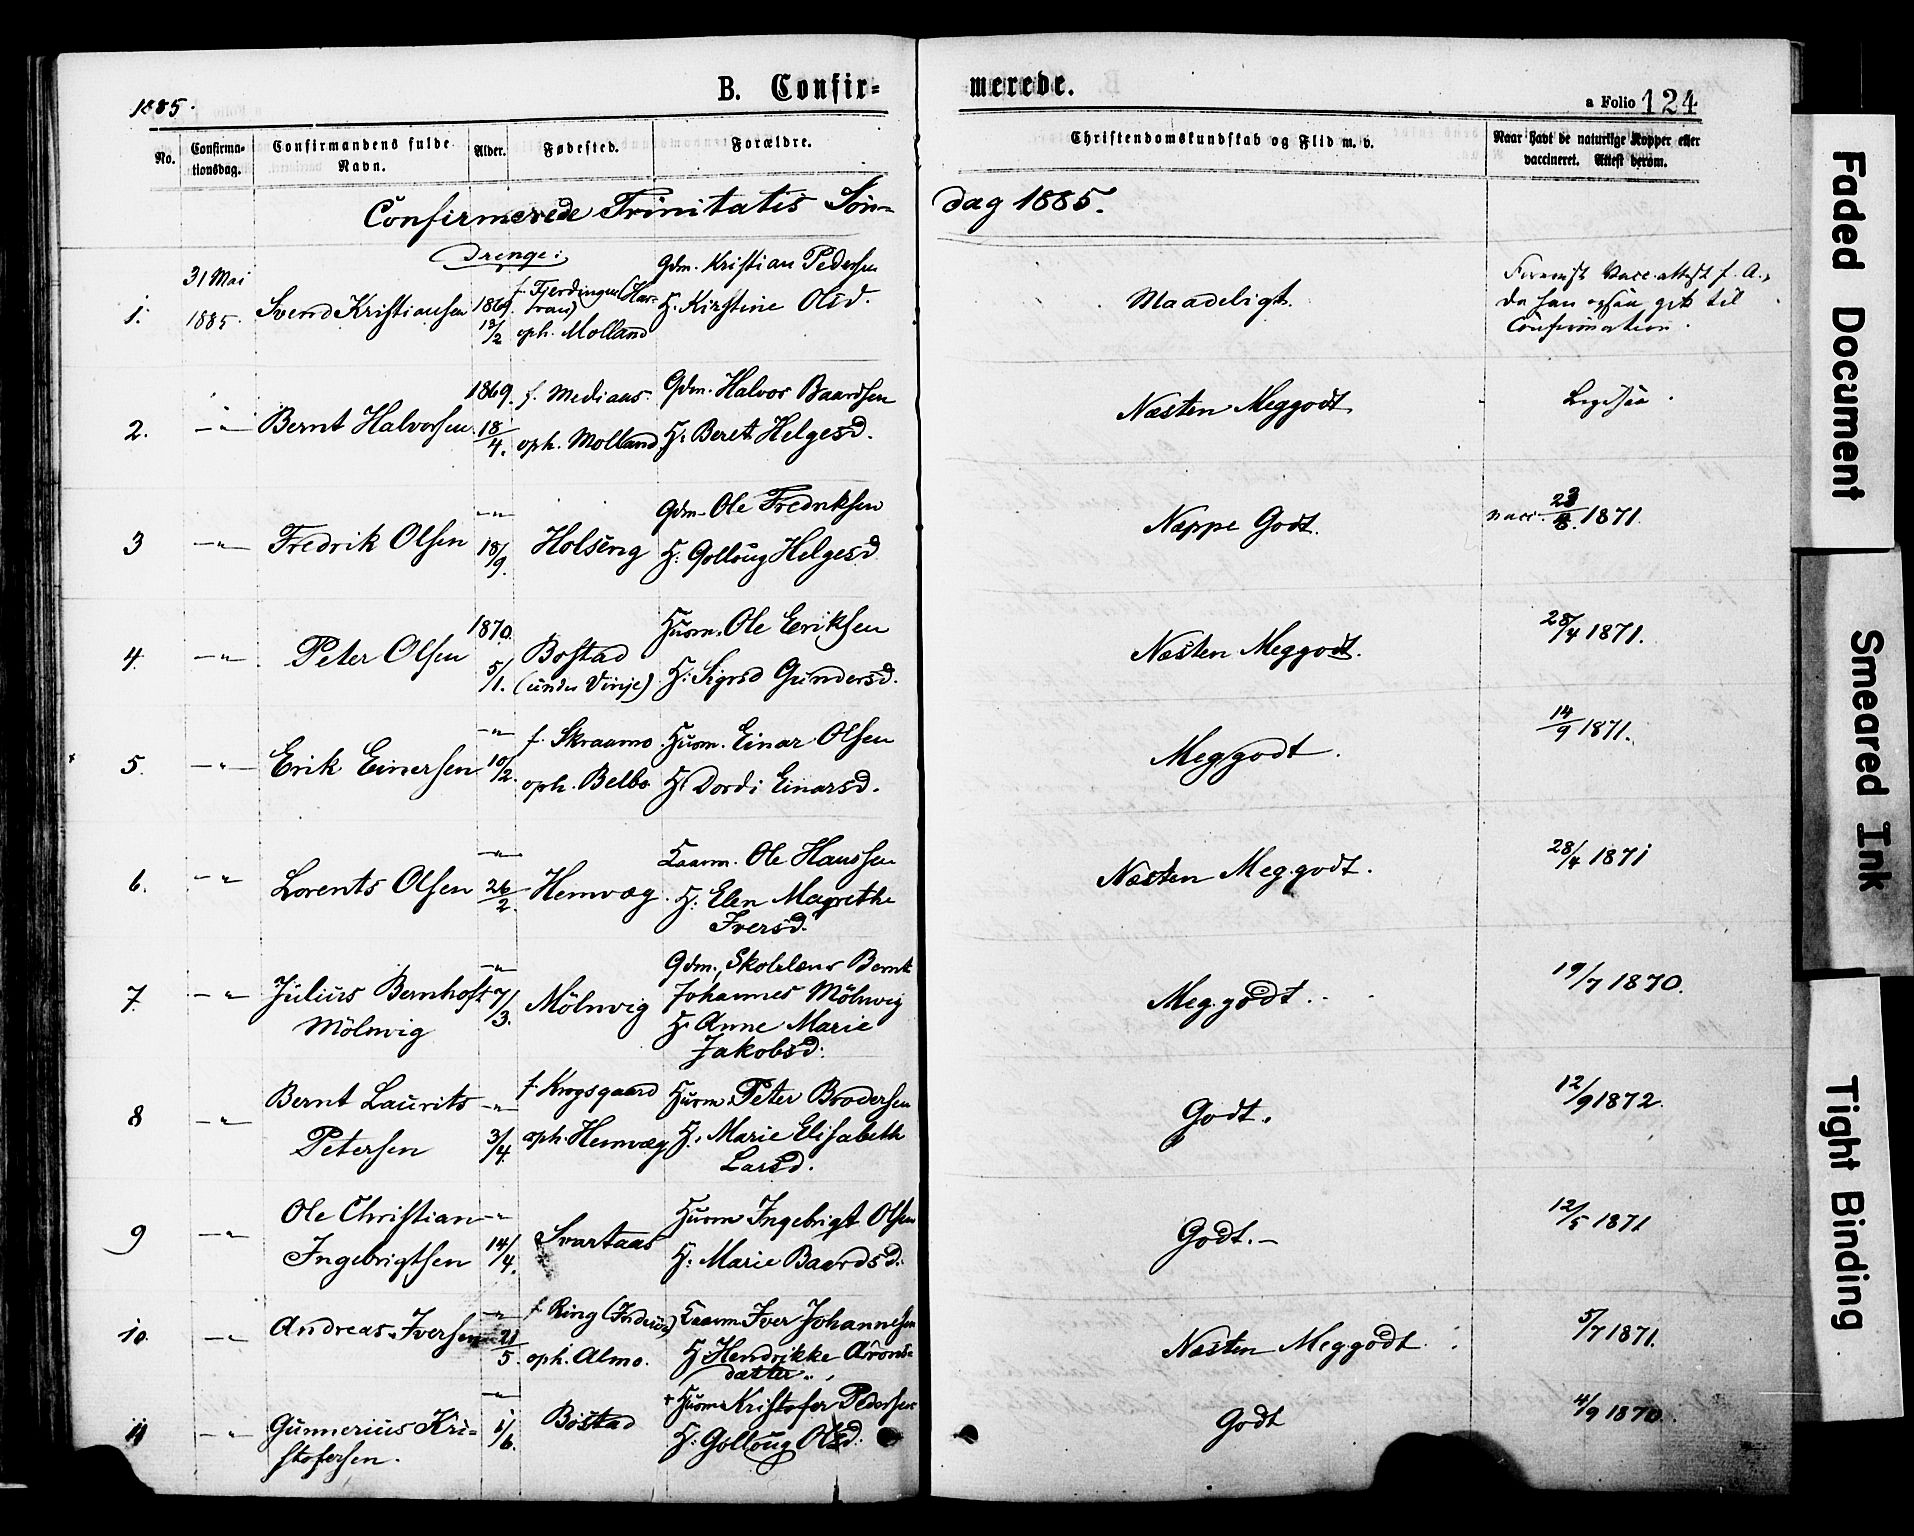 1885.
B. Confir-
merede.
a Folio 124
No.
Confirma-
tionsdag.
Confirmandens fulde
Navn.
Alder.
Fødested.
Forældre.
Christendomskundskab og Flid m. v.
Naar havt de naturlige Kopper eller
vaccineret. Attest derom.
Confirmerede Trinitatis Søn-
dag 1885.
Drenge:
1.
31 Mai
1885.
Svend Kristiansen
1869.
13/2
f. Fjerdingen (Har-
ran)
oph. Molland
Gdm. Kristian Pedersen
H. Kirstine Olsd.
Maadeligt.
Vacc. attest f. A.,
da han ogsaa
Confirmation.
2.
— " —
Bernt Halvorsen
1869.
18/4.
f. Mediaas
oph. Molland
Gdm. Halvor Baardsen
H. Beret Helgesd.
Næsten Meggodt
Ligesaa.
3
— " —
Fredrik Olsen
— " —
18/9.
Holseng
Gdm. Ole Fredriksen
H. Golloug Helgesd
Næppe Godt.
vacc. 1871.
4.
— " —
Peter Olsen
1870.
5/1.
Bostad
(under Vinje)
Husm. Ole Eriksen
H. Sigrid Gundersd.
Næsten Meggodt.
28/4 1871.
5.
— " —
Erik Einersen
— " —
10/2.
f. Skraamo
oph. Belbo
Husm. Einar Olsen
H. Dordi Einarsd.
Meggodt.
14/9 1871.
6.
— " —
Lorents Olsen
— " —
26/2.
Hemvæg
Ole Hanssen
H. Elen Magrethe
Iversd.
Næsten Meg.godt.
28/4 1871
7.
— " —
Julius Bernhoft
Mölnvig
— " —
7/3.
Mölnvig
Gdm., Skolelærer Bernt
Johannes Mölnvig
H. Anne Marie
Jakobsd.
Meg.godt.
19/7 1870.
8
— " —
Bernt Laurits
Petersen
— " —
3/4.
f. Krogsgaard
oph. Hemvæg
Husm. Peter Brodersen
H. Marie Elisabeth
Larsd.
Godt.
12/9 1872.
9
— " —
Ole Christian
Ingebrigtsen
— " —
14/4.
Svartaas
Husm. Ingebrigt Olsen
H. Marie Baardsd.
Godt. —
12/5 1871
10.
— " —
Andreas Iversen
— " —
21/5.
f. Ring (Inderøen)
oph. Almo.
Iver Johannesen
H. Hendrikke Arons-
datter.
Næsten Meg.godt.
5/7 1871.
11
— " —
Gunnerius Kri-
stofersen.
— " —
1/6.
Bostad
+ Husm. Kristofer Pedersen
H. Golloug Olsd.
Godt
4/9 1870.
Faded Document
Smeared Ink
Tight Binding